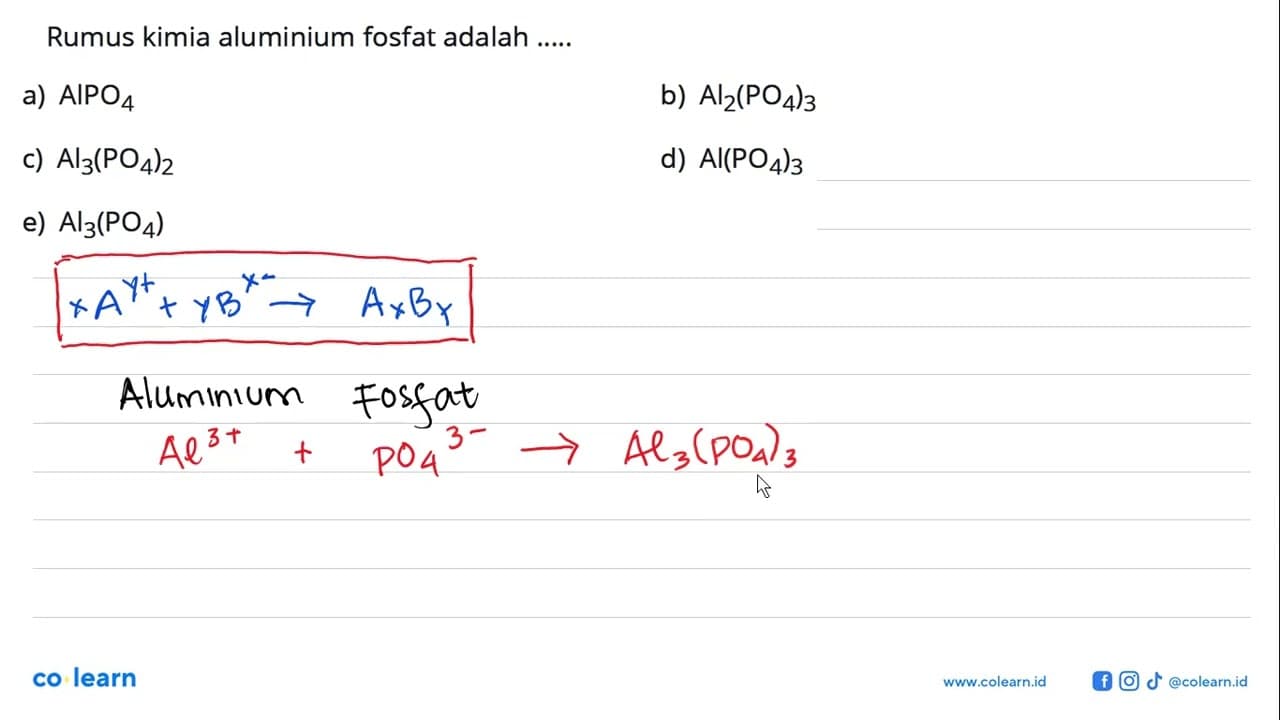 Rumus kimia aluminium fosfat adalah .....
a) AlPO₄
b) Al₂(PO₄)₃
c) Al₃(PO₄)₂
d) Al(PO₄)₃
e) Al₃(PO₄)
xA^y+ + yB^x- → AₓBᵧ
Aluminium Fosfat
Al³⁺ + PO₄³⁻ → Al₃(PO₄)₃
co learn
www.colearn.id
@colearn.id